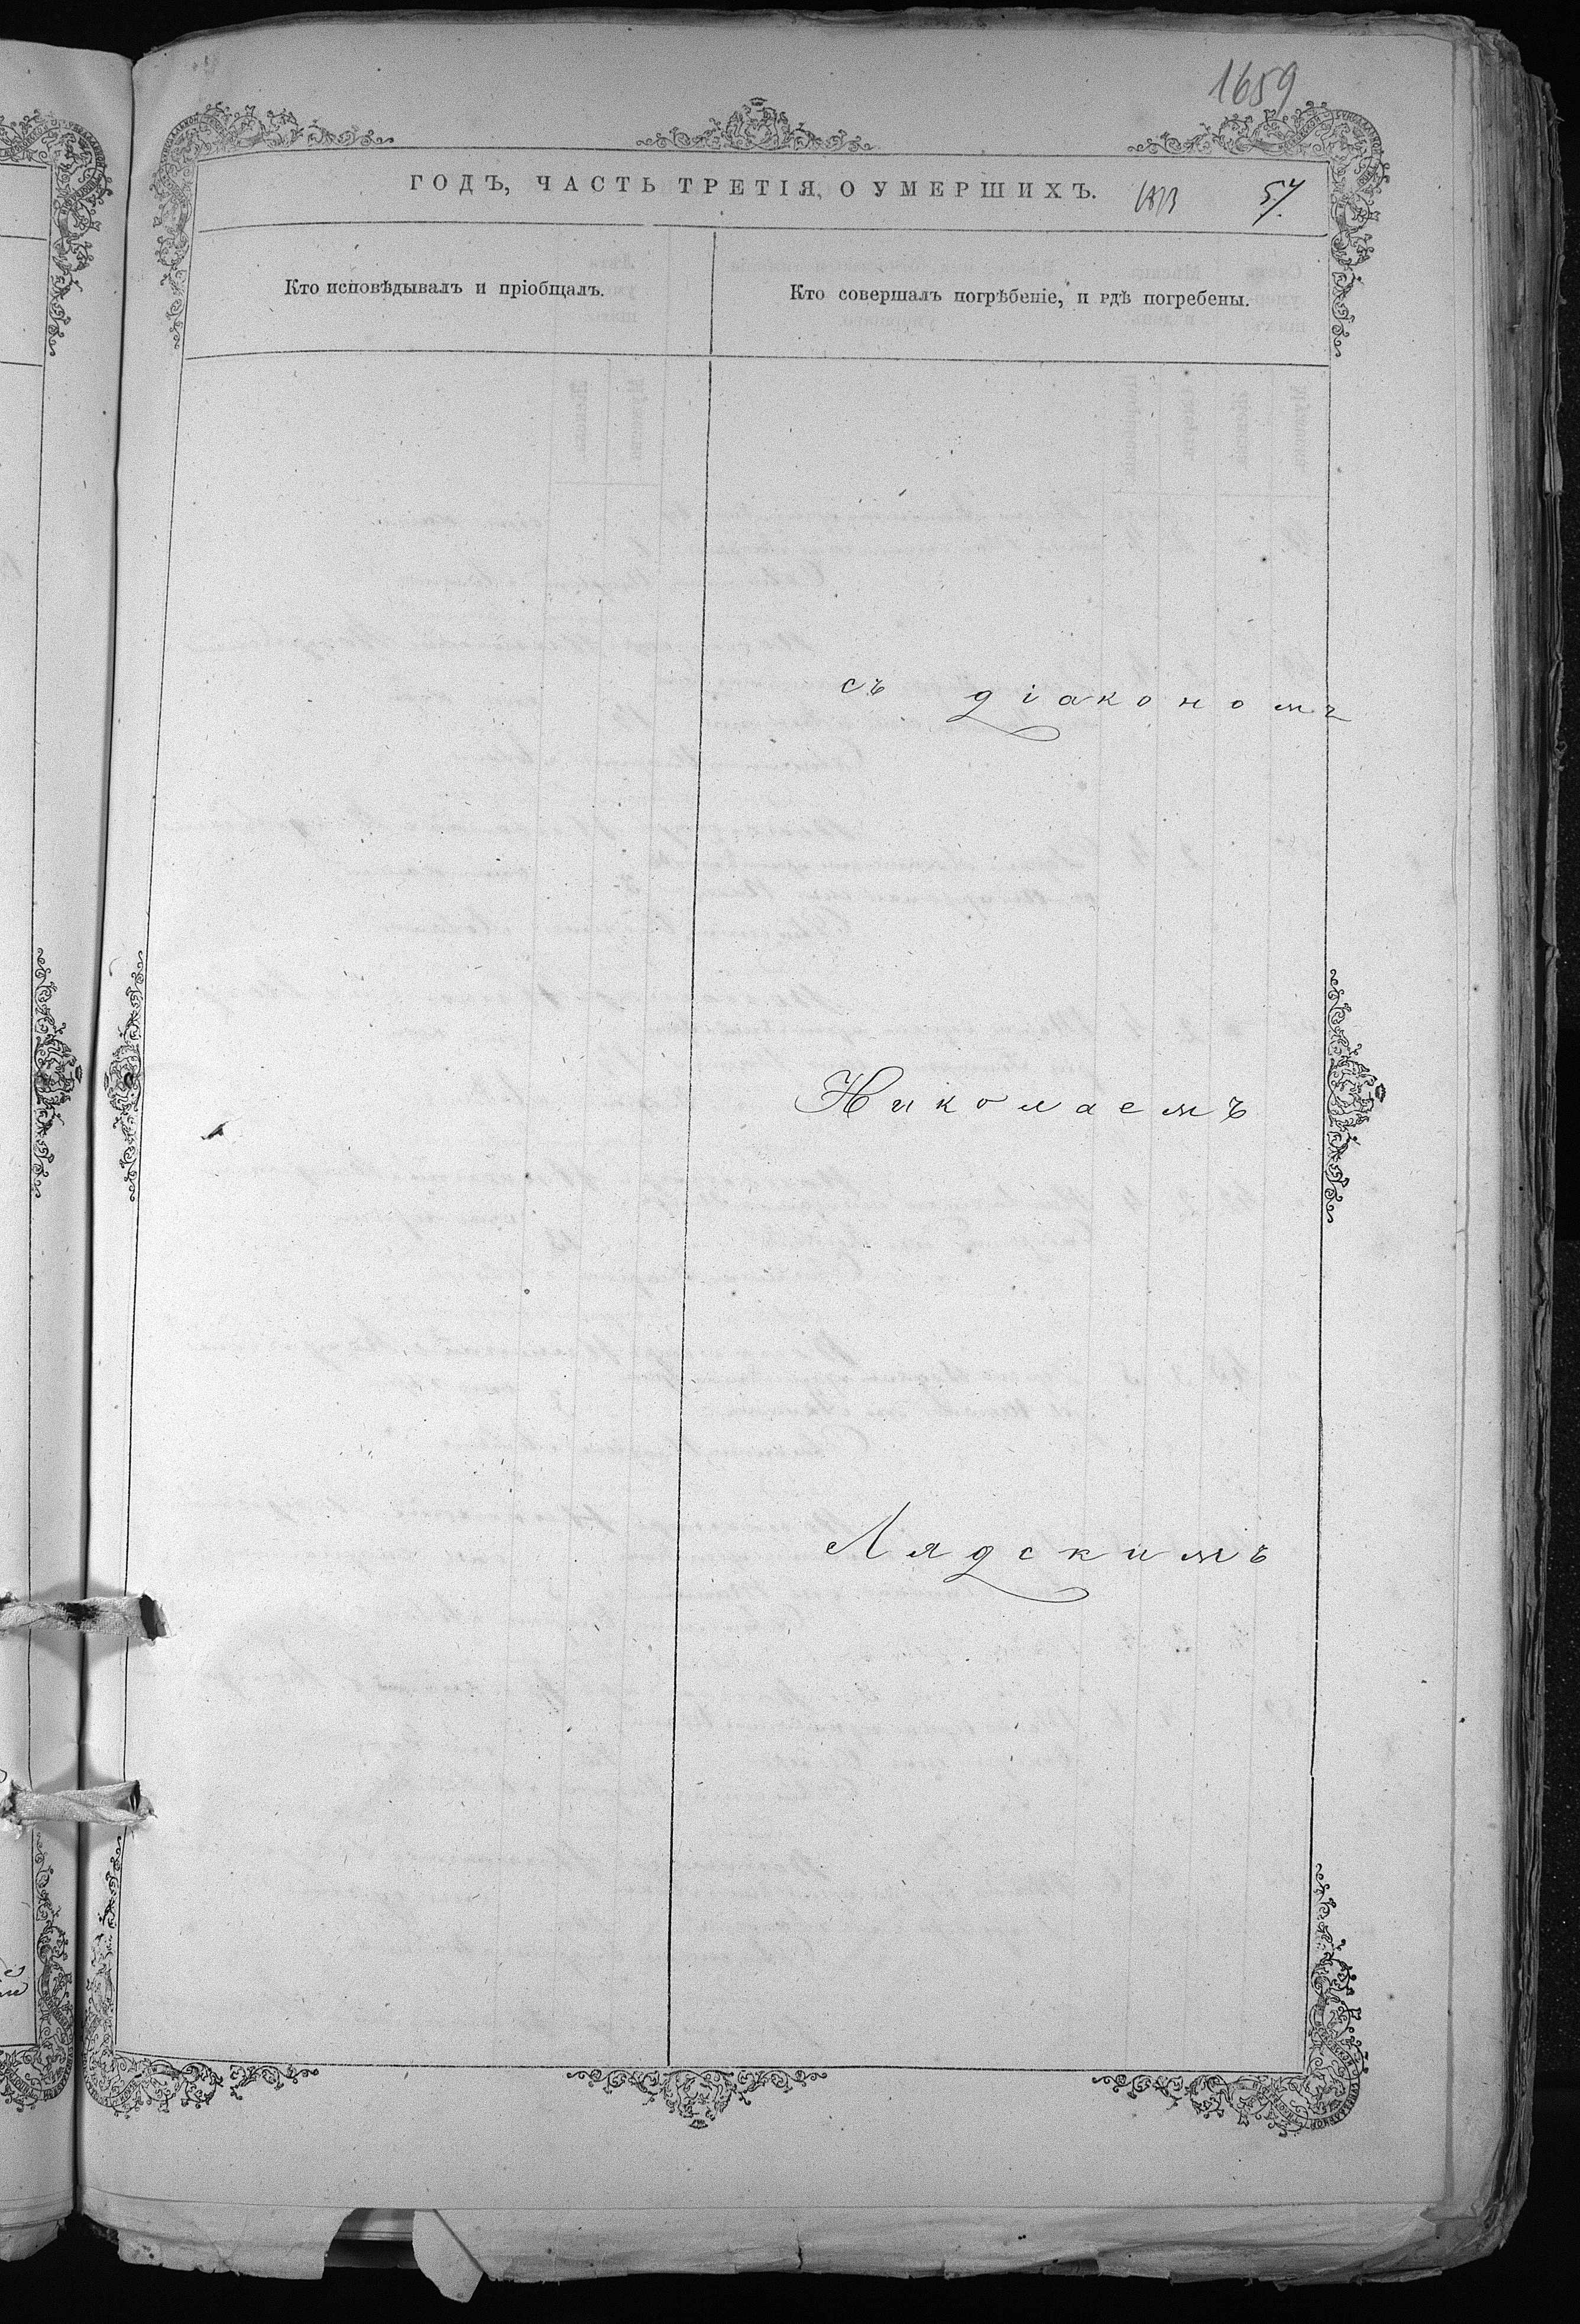 1659
ГОДЪ, ЧАСТЬ ТРЕТІЯ, О УМЕРШИХЪ.
57.
Кто исповѣдывалъ и пріобщалъ.
Кто совершалъ погрѣбеніе, и гдѣ погребены.
съ діакономъ
Николаемъ
Лядскимъ